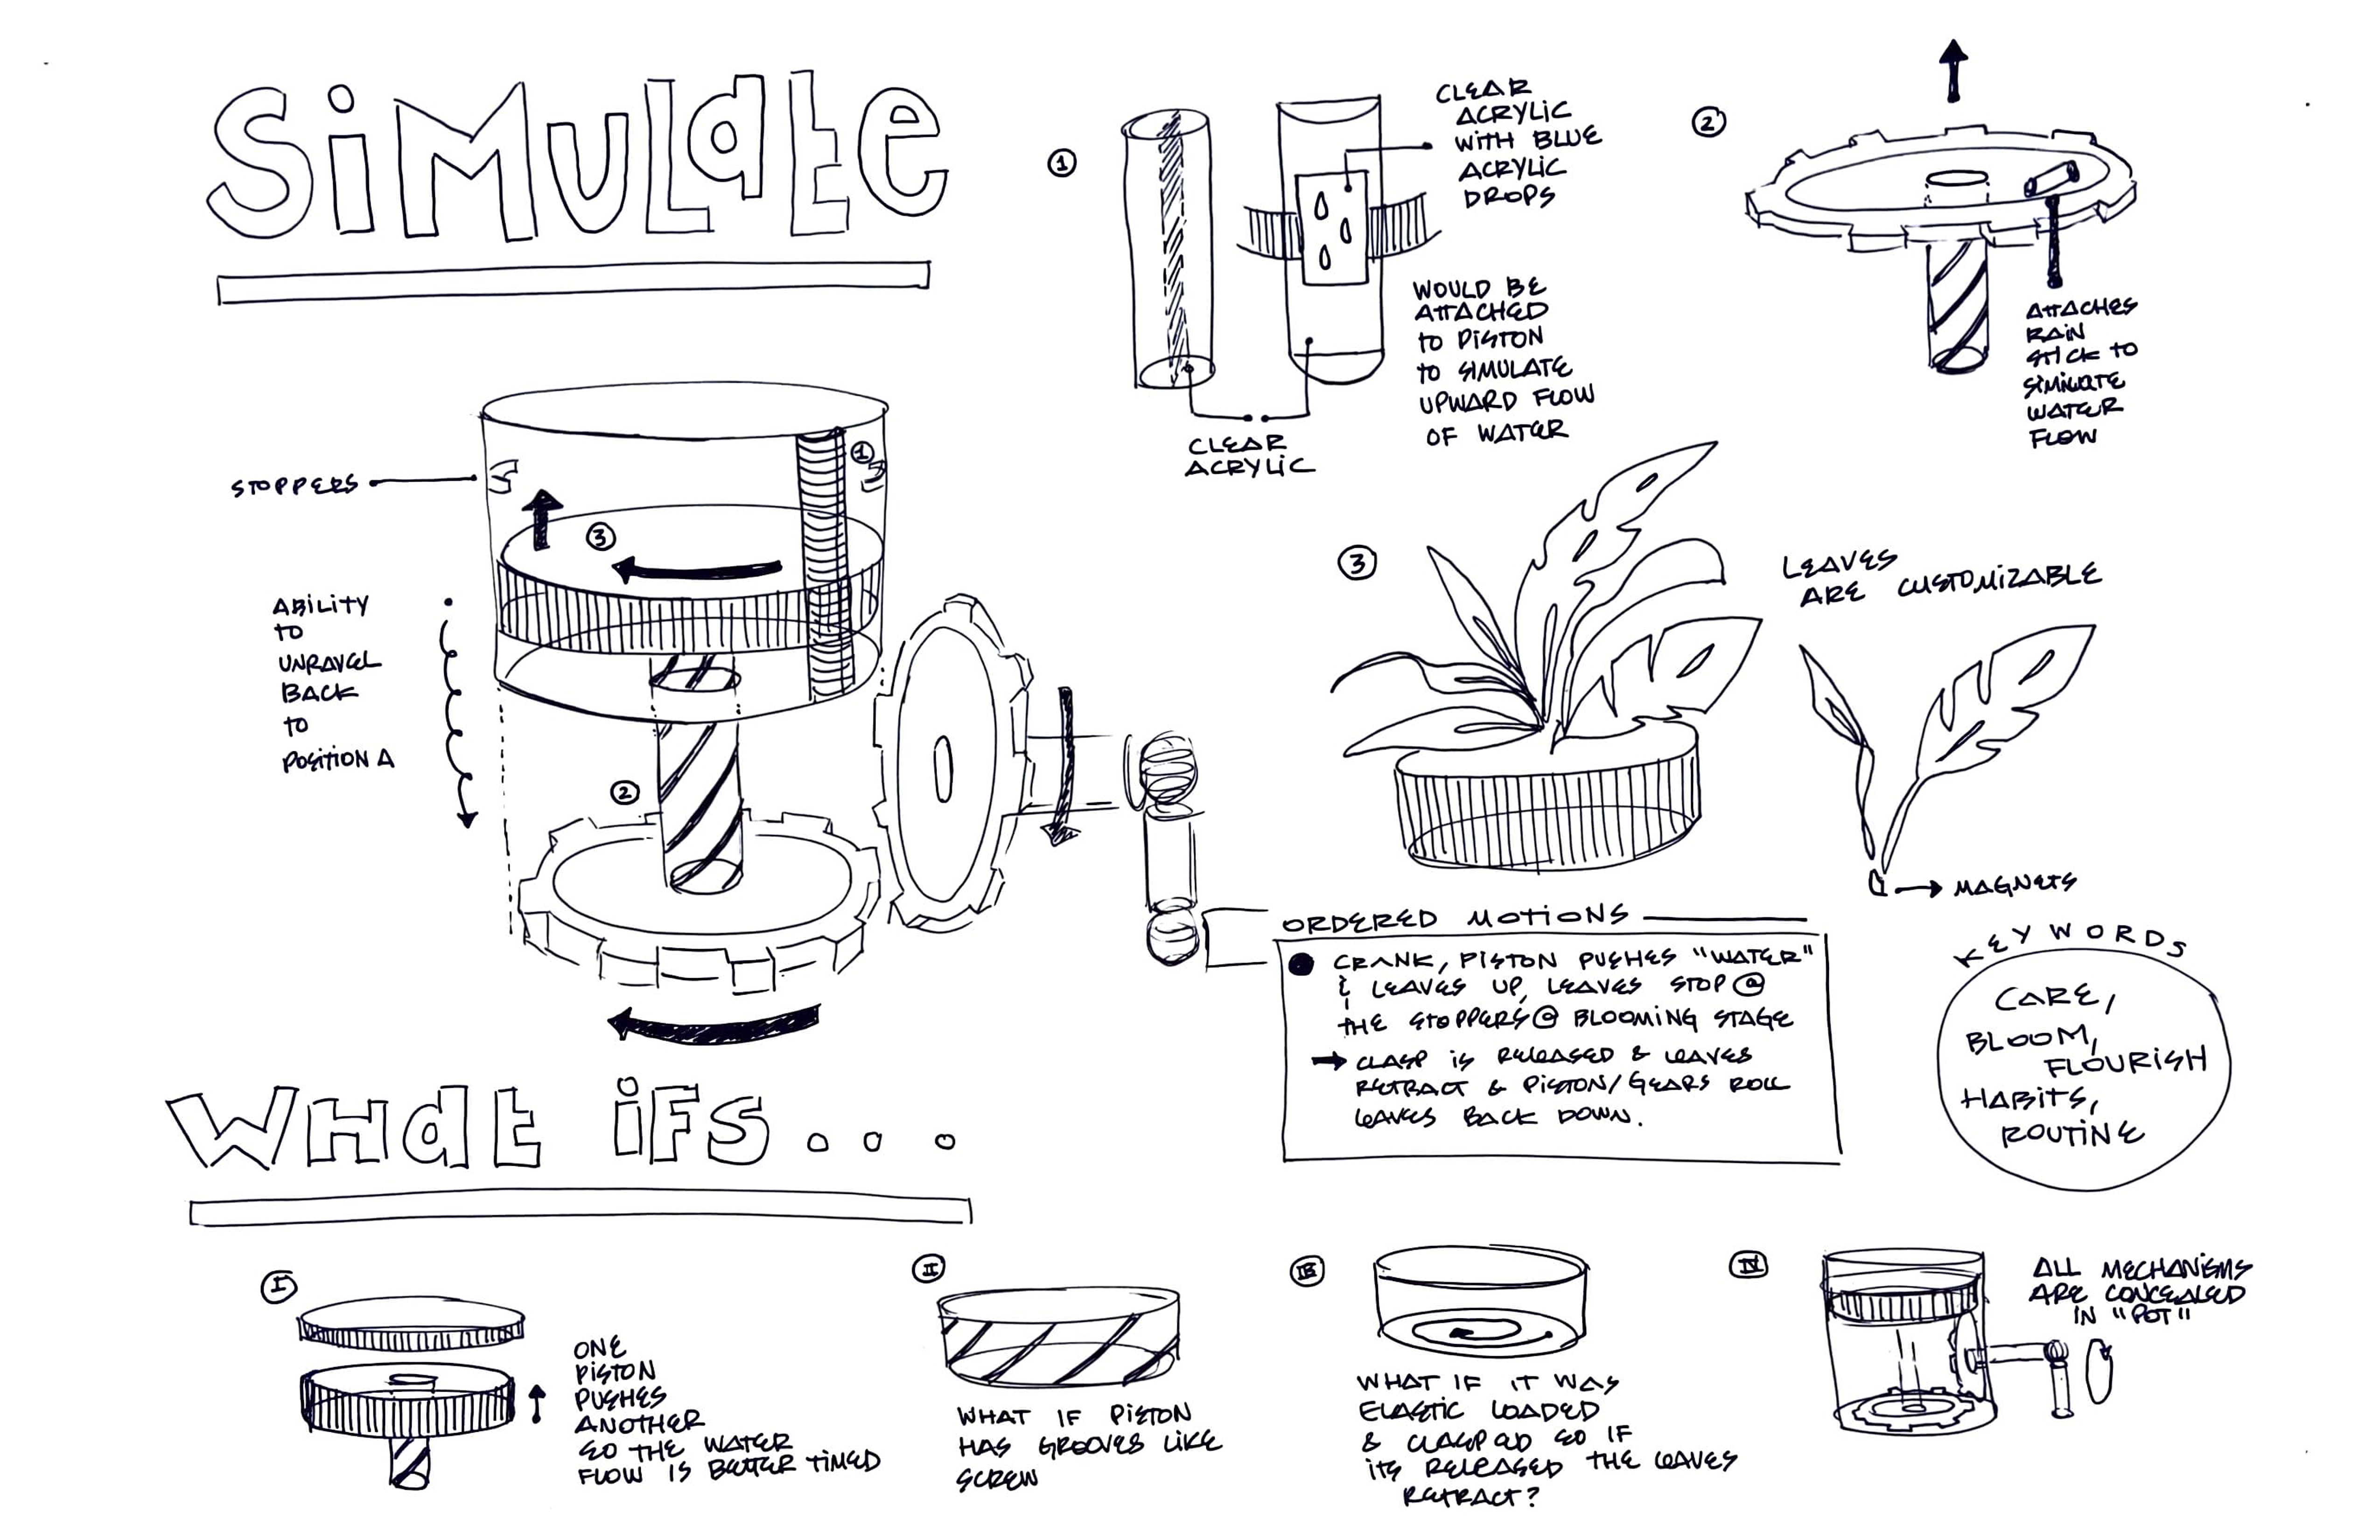 SiMULatE
①
CLEAR
ACRYLiC
WiTH BLUE
ACRYLiC
DROPS
WOULD BE
ATTACHED
to PiSTON
to SiMULATE
UPWARD FLOW
OF WATER
CLEAR
ACRYLiC
②
ATTACHES
RAiN
STiCK to
SiMiULATE
WATER
FLOW
STOPPERS
①
③
ABiLiTY
to
UNRAVEL
BACK
to
POSiTiON A
②
③
LEAVES
ARE CUSTOMiZABLE
MAGNETS
ORDERED MOTiONS
CRANK, PiSTON PUSHES "WATER"
& LEAVES UP, LEAVES STOP @
THE STOPPERS @ BLOOMiNG STAGE
→ CLASP iS RELEASED & LEAVES
RETRACT & PiSTON/GEARS ROLL
LEAVES BACK DOWN.
KEY WORDS
CARE,
BLOOM,
FLOURiSH
HABiTS,
ROUTiNE
WHat iFS...
I
ONE
PiSTON
PUSHES
ANOTHER
SO THE WATER
FLOW iS BETTER TiMED
II
WHAT IF PiSTON
HAS GROOVES LiKE
SCREW
III
WHAT IF iT WAS
ELASTiC LOADED
& CLASPED SO IF
iTS RELEASED THE LEAVES
RETRACT?
IV
ALL MECHANiSMS
ARE CONCEALED
IN "POT"